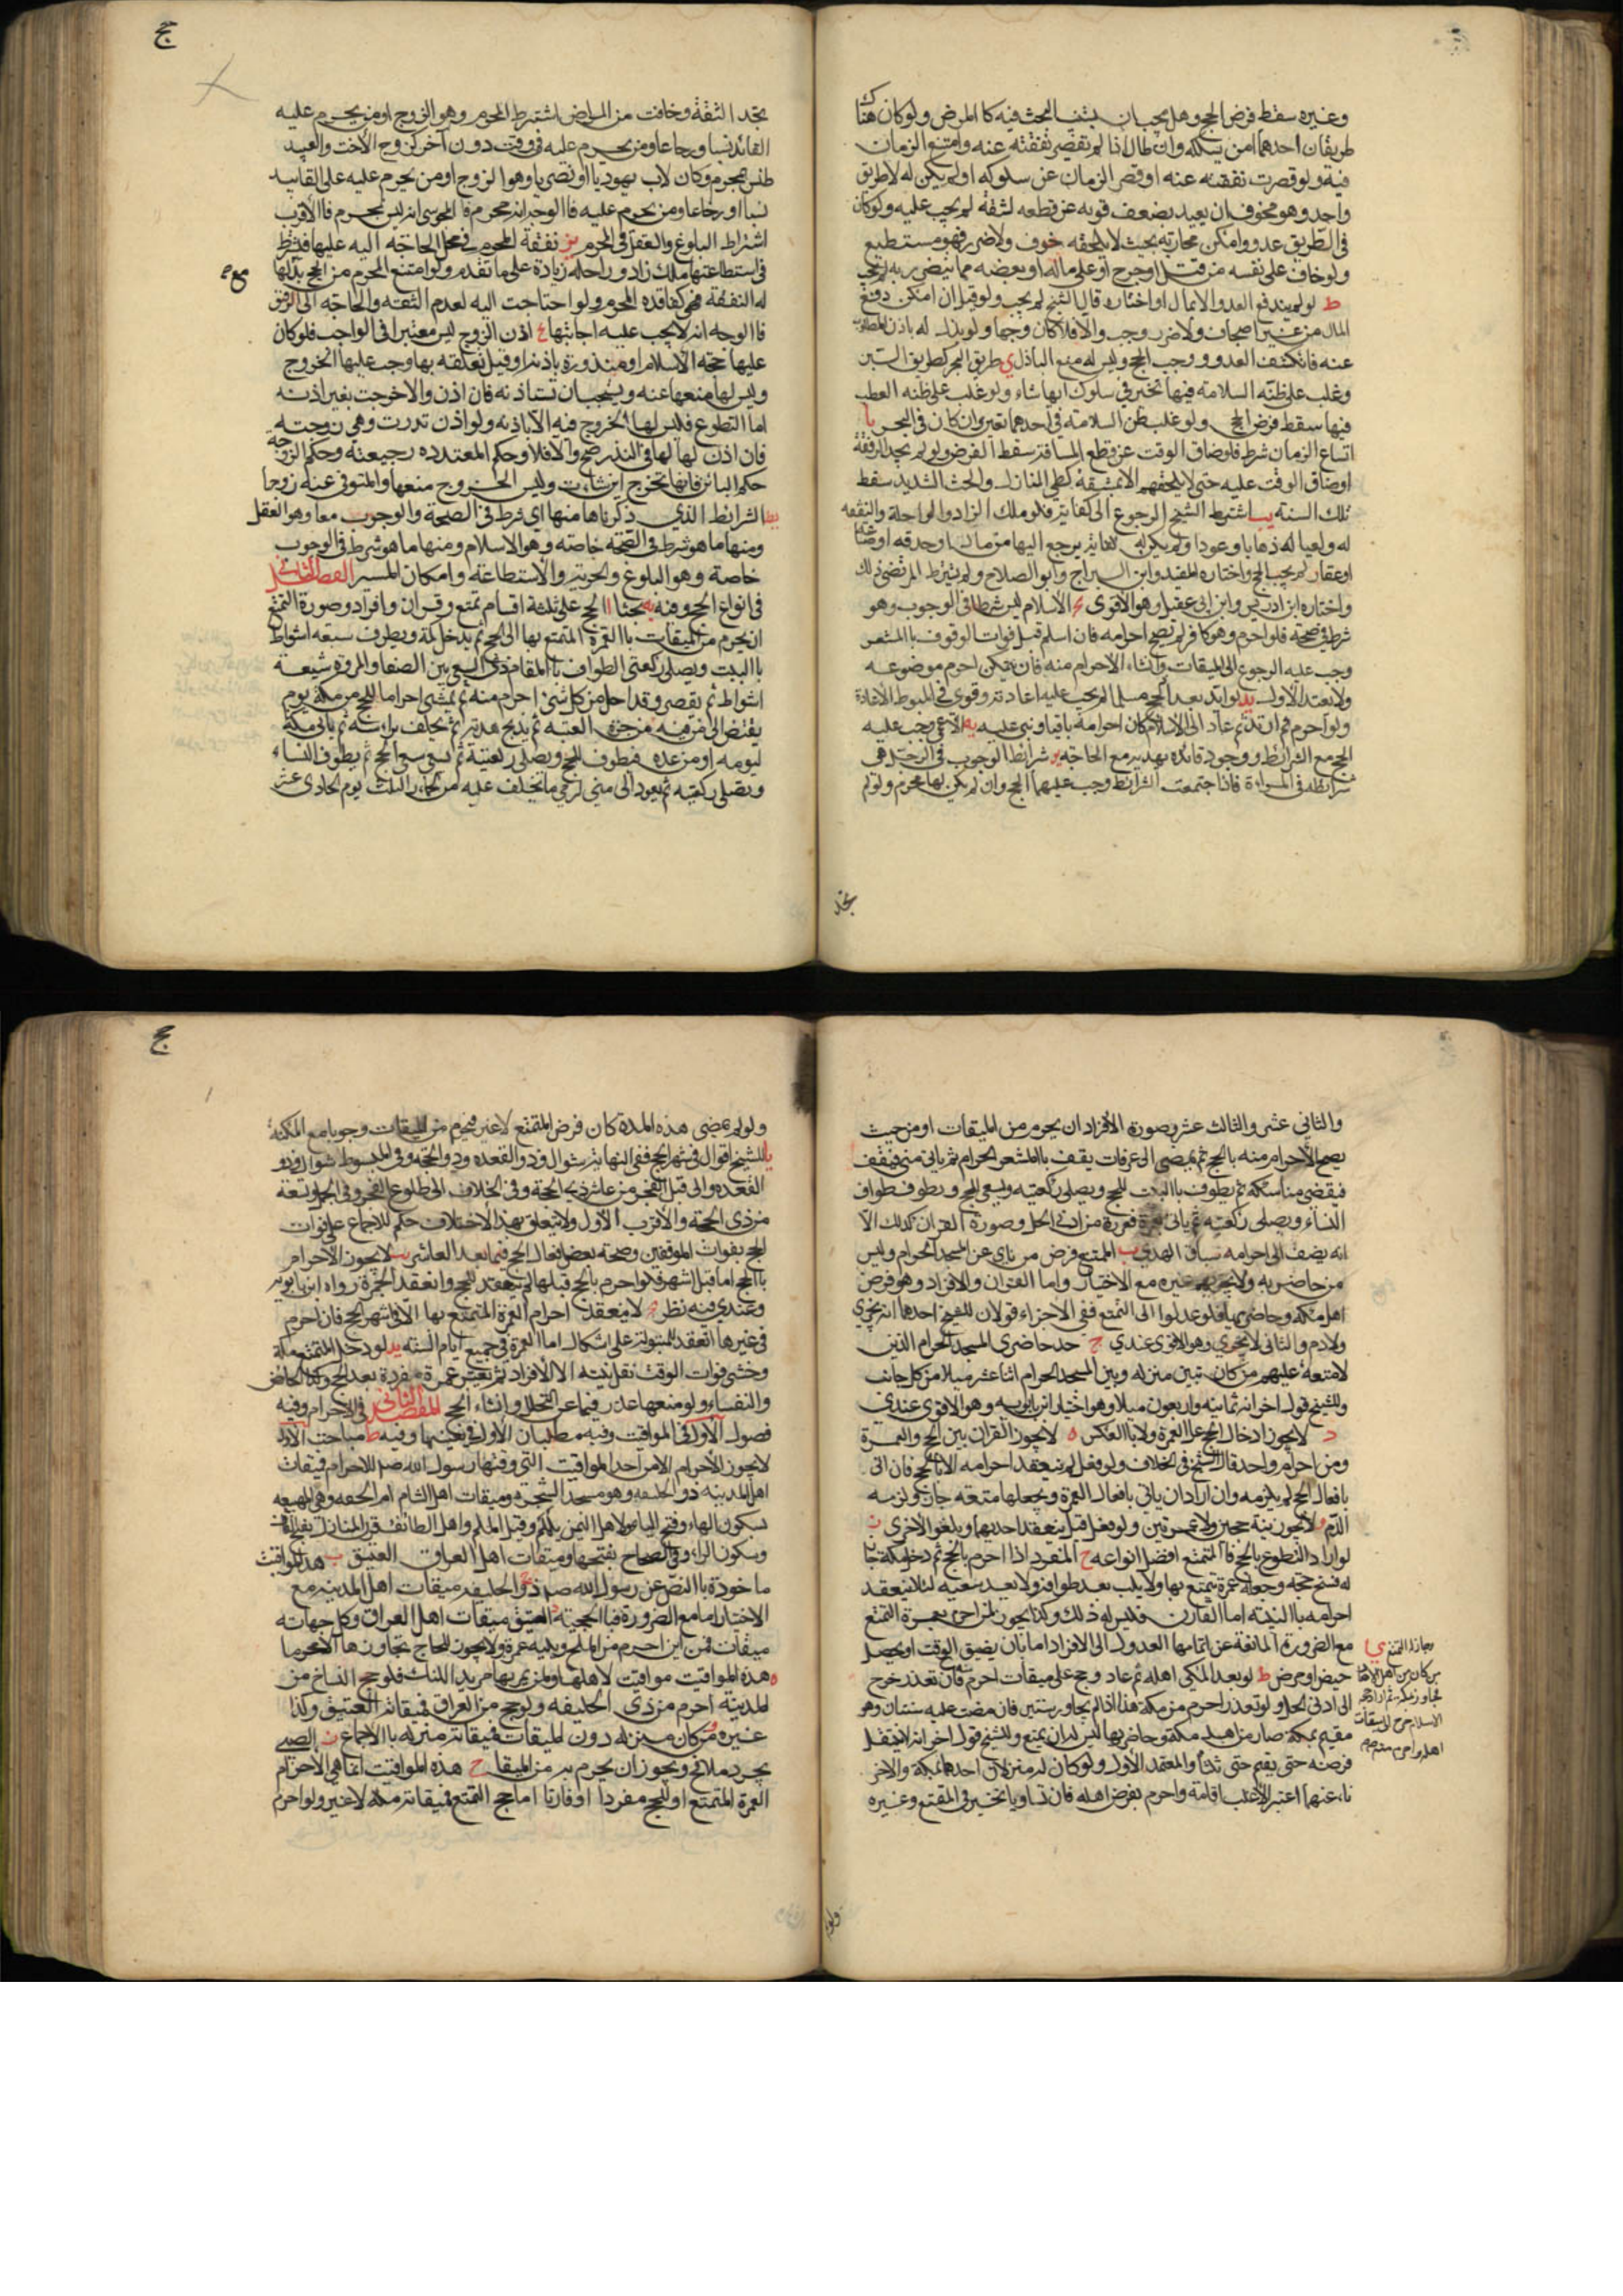 وغيره سقط فرض الحج وهل يجب ان
طريقان احدهما امن سلكه وان طال اذا لم تقصر نفقته عنه وامتنع الزمان
فيه ولو قصرت نفقته عنه او قصر الزمان عن سلوكه او لم يكن له الا طريق
واحد وهو مخوف ان يعيد بضعف قوته عن قطعه لشقة لم يجب عليه ولو كان
في الطريق عدو وامكن محاربته بحيث لا يلحقه خوف ولا ضرر فهو مستطيع
ولو خاف على نفسه من قتل او جرح او على ماله او بعضه مما يتضرر به لم يجب
ط لو لم يندفع العدو الا بمال او اختاره قال الشيخ لم يجب ولو قيل ان امكن دفع
المال من غير اجحاف ولا ضرر وجب والا فلا كان وجها ولو بذل له باذل المطلوب
عنه فانكشف العدو ووجب الحج وليس له منع الباذل ي طريق البحر كطريق البر
وغلب على ظنه السلامة فيها تخير في سلوك ايها شاء ولو غلب على ظنه العطب
فيها سقط فرض الحج ولو غلب ظن السلامة في احدهما تعين وان كان في البحر يا
اتساع الزمان شرط فلو ضاق الوقت عن قطع المسافة سقط الفرض ولو لم يجد الرفقة
او ضاق الوقت عليه حتى لا يلحقهم الا بمشقة كطي المنازل والحث الشديد سقط
تلك السنة يب اشترط الشيخ الرجوع الى كفاية فلو ملك الزاد والراحلة والنفقة
له ولعياله ذهابا وعودا ولم يكن له كفاية يرجع اليها من مال او حرفة او صناعة
او عقار لم يجب الحج واختاره المفيد وابن السراج وابو الصلاح ولم يشترط المرتضى ذلك
واختاره ابن ادريس وابن ابي عقيل وهو الاقوى يج الاسلام ليس شرطا في الوجوب وهو
شرط في صحته فلو احرم وهو كافر لم تصح احرامه فان اسلم قبل فوات الوقوف بالمشعر
وجب عليه الرجوع الى الميقات وانشاء الاحرام منه فان لم يتمكن احرم موضوعه
ولا يعتد بالاول يد لو ارتد بعد الحج مسلما لم يجب عليه اعادته وقوى في المبسوط الاعادة
ولو احرم ثم ارتد ثم عاد الى الاسلام كان احرامه باقيا وبنى عليه يه الاعمى وجب عليه
الحج مع الشرائط ووجود قائده يهديه مع الحاجة يو شرائط الوجوب في الرجل هي
شرائطه في المراءة فاذا اجتمعت الشرائط وجب عليهما الحج وان لم يكن بها محرم ولو لم
تجد
حج
تجد الثقة وخافت من المرض اشترط المحرم وهو الزوج او من يحرم عليه
او من يحرم عليه في وقت دون آخر كزوج الاخت والعبد
ليس بمحرم ولو كان لاب يهوديا او نصرانيا وهو الزوج او من يحرم عليه على التابيد
نسبا او رضاعا ومن يحرم عليه فالوجه انه محرم فالمجوسي انه ليس بمحرم فالاقرب
اشتراط البلوغ والعقل في المحرم يز نفقة المحرم في محل الحاجة اليه عليها فيشترط
في استطاعتها ملك زاد وراحلة زيادة على ما تقدم ولو امتنع المحرم من الحج ببذلها
له النفقة فهي كفاقدة المحرم ولو احتاجت اليه لعدم الثقة والحاجة الى الرفق
فالوجه انه لا يجب عليه اجابتها يح اذن الزوج ليس معتبرا في الواجب فلو كان
عليها حجة الاسلام او منذورة باذنه او قبل تعلقه بها وجب عليها الخروج
وليس لها منعها عنه ويستحب ان تستاذنه فان اذن والا خرجت بغير اذنه
اما التطوع فليس لها الخروج فيه الا باذنه ولو اذن ندرت وهي زوجته
فان اذن لها في النذر صح والا فلا وحكم المعتدة رجعية وحكم الزوجة
حكم البائن فانها تخرج اين شاءت وليس الخروج منعها والمتوفى عنها زوجها
يط الشرائط الذي ذكرناها منها اي شرط في الصحة والوجوب معا وهو العقل
ومنها ما هو شرط في الصحة خاصة وهو الاسلام ومنها ما هو شرط في الوجوب
خاصة وهو البلوغ والحرية والاستطاعة وامكان المسير الفصل الثاني
في انواع الحج وفيه يه بحثا ا الحج على ثلثة اقسام تمتع وقران وافراد وصورة التمتع
ان يحرم من الميقات باالعمرة المتمتع بها الى الحج ثم يدخل مكة ويطوف سبعة اشواط
باالبيت ويصلي ركعتي الطواف بالمقام ثم السعي بين الصفا والمروة سبعة
اشواط ثم يقصر وقد احل من كل شئ احرم منه ثم ينشئ احراما للحج من مكة يوم
من جمرة العقبة ثم يذبح هديه ثم يحلف براسه ثم ياتي مكة
ليومه او من غده فيطوف للحج ويصلي ركعتيه ثم يسعى سعي الحج ثم يطوف النساء
ويصلي ركعتيه ثم يعود الى منى لرمي ما تخلف عليه من الجمار الثلث يوم الحادي عشر
والثاني عشر والثالث عشر وصورة الافراد ان يحرم من الميقات او من حيث
يصح الاحرام منه بالحج ثم يمضي الى عرفات يقف باالمشعر الحرام ثم ياتي منى
فيقضي مناسكه ثم يطوف باالبيت للحج ويصلي ركعتيه ويسعى للحج ويطوف طواف
النساء ويصلي ركعتيه ثم ياتي بعمرة مفردة من ادنى الحل وصورة القران كذلك الا
انه يضيف الى احرامه سياق الهدي ب التمتع فرض من ناى عن المسجد الحرام وليس
من حاضريه ولا يجزيهم غيره مع الاختيار واما القران والافراد وهو فرض
اهل مكة وحاضريها فلو عدلوا الى التمتع ففي الاجزاء قولان للشيخ احدهما انه يجزي
ولا دم والثاني لا يجزي وهو الاقوى عندي ج حد حاضري المسجد الحرام الذين
لا متعة عليهم من كان بين منزله وبين المسجد الحرام اثنا عشر ميلا من كل جانب
وللشيخ قول اخر انه ثمانية واربعون ميلا وهو اختيار ابن بابويه وهو الاقوى عندي
د لا يجوز ادخال الحج على العمرة ولا باالعكس ه لا يجوز القران بين الحج والعمرة
ومن احرام واحد قال الشيخ في الخلاف ولو فعل لم ينعقد احرامه الا بالحج فان اتى
بافعال الحج لم يلزمه وان اراد ان ياتي بافعال العمرة ويجعلها متعة جاز ولزمه
الدم و لا يجوز نية حجتين ولا عمرتين ولو فعل قيل ينعقد احديهما ويلغو الاخرى ز
لو اراد التطوع بالحج فاالتمتع افضل انواعه ح المنفرد اذا احرم بالحج ثم دخل مكة جاز
له فسخ حجه وجعله عمرة يتمتع بها ولا يلب بعد طوافه ولا بعد سعيه لئلا ينعقد
احرامه باالنية اما القارن فليس له ذلك وكذا يجوز لمن احرم بعمرة التمتع
مع الضرورة المانعة عن اتمامها العدول الى الافراد اما بان يضيق الوقت او يحصل
حيض او مرض ط لو بعد المكي اهله ثم عاد وحج على ميقات احرم فان تعذر خرج
الى ادنى الحل ولو تعذر احرم من مكة هذا اذا لم يجاور سنتين فان مضت عليه سنتان وهو
مقيم بمكة صار من اهل مكة وحاضريها ليس له ان يتمتع وللشيخ قول اخر انه لا ينتقل
فرضه حتى يقيم حتى ثلثا والمعتمد الاول ولو كان له منزلان احدهما بمكة والاخر
ناء عنها اعتبر الاغلب اقامة واحرم بفرض اهله فان تساويا تخير في التمتع وغيره
حج
ولو لم تمضى هذه المدة كان فرض المتمتع لا غير فيحرم من الميقات وجوبا مع المكنة
يا للشيخ اقوال في شهر الحج ففي النهاية شوال وذو القعدة وذو الحجة وفي المبسوط شوال وذو
القعدة والى قبل الفجر من عاشر ذي الحجة وفي الخلاف الى طلوع الفجر وفي الجمل وتسعة
من ذي الحجة والاقرب الاول ولا يتعلق بهذا الاختلاف حكم للاجماع على فوات
الحج بفوات الموقفين وصحة بعض افعال الحج فيما بعد العاشر يب لا يجوز الاحرام
باالحج اما قبل اشهر فلو احرم بالحج قبلها لم ينعقد للحج وانعقد للعمرة رواه ابن بابويه
وعندي فيه نظر يج لا ينعقد احرام العمرة المتمتع بها الا في اشهر الحج فان احرم
في غيرها انعقد للمبتولة على اشكال اما العمرة في جميع ايام السنة يد لو دخل المتمتع مكة
وخشى فوات الوقت نقل نيته الى الافراد ثم يعتمر عمرة مفردة بعد الحج وكذا الحائض
والنفساء ولو منعها عذر فيما عن التحلل وانشاء الحج المقصد الثاني في الاحرام وفيه
فصول الاول في المواقيت وفيه مطلبان الاول في تعيينها وفيه ط مباحث الاول
لا يجوز للاحرام الا من احد المواقيت التي وقتها رسول الله صلى الله للاحرام فميقات
اهل المدينة ذو الحليفة وهو مسجد الشجرة وميقات اهل الشام ام الجحفه وهي المهيعه
بسكون الهاء وفتح الياء ولاهل اليمن يلملم وقيل الملم واهل الطائف قرن المنازل
وسكون الراء وفي الصحاح بفتحها وميقات اهل العراق العقيق ب هذه المواقيت
ماخوذة باالنص عن رسول الله صلى ج ذو الحليفة ميقات اهل المدينة مع
الاختيار اما مع الضرورة فاالجحفة د العقيق ميقات اهل العراق وكل جهاته
ميقات فمن اين احرم ولا يجوز للحاج تجاوزها الا محرما
ه هذه المواقيت مواقيت لاهلها ولمن يمر بها مريدا للنسك فلو حج الشاخ من
المدينة احرم من ذي الحليفة ولو حج من العراق فميقاته العقيق وكذا
غيره و من كان منزله دون الميقات فميقاته منزله باالاجماع ز الصبي
يجرد من فخ ويجوز ان يحرم به من الميقا ح هذه المواقيت انما هي لاحرام
العمرة المتمتع او للحج مفردا او قارنا اما حج التمتع فميقاته مكة لا غير ولو احرم